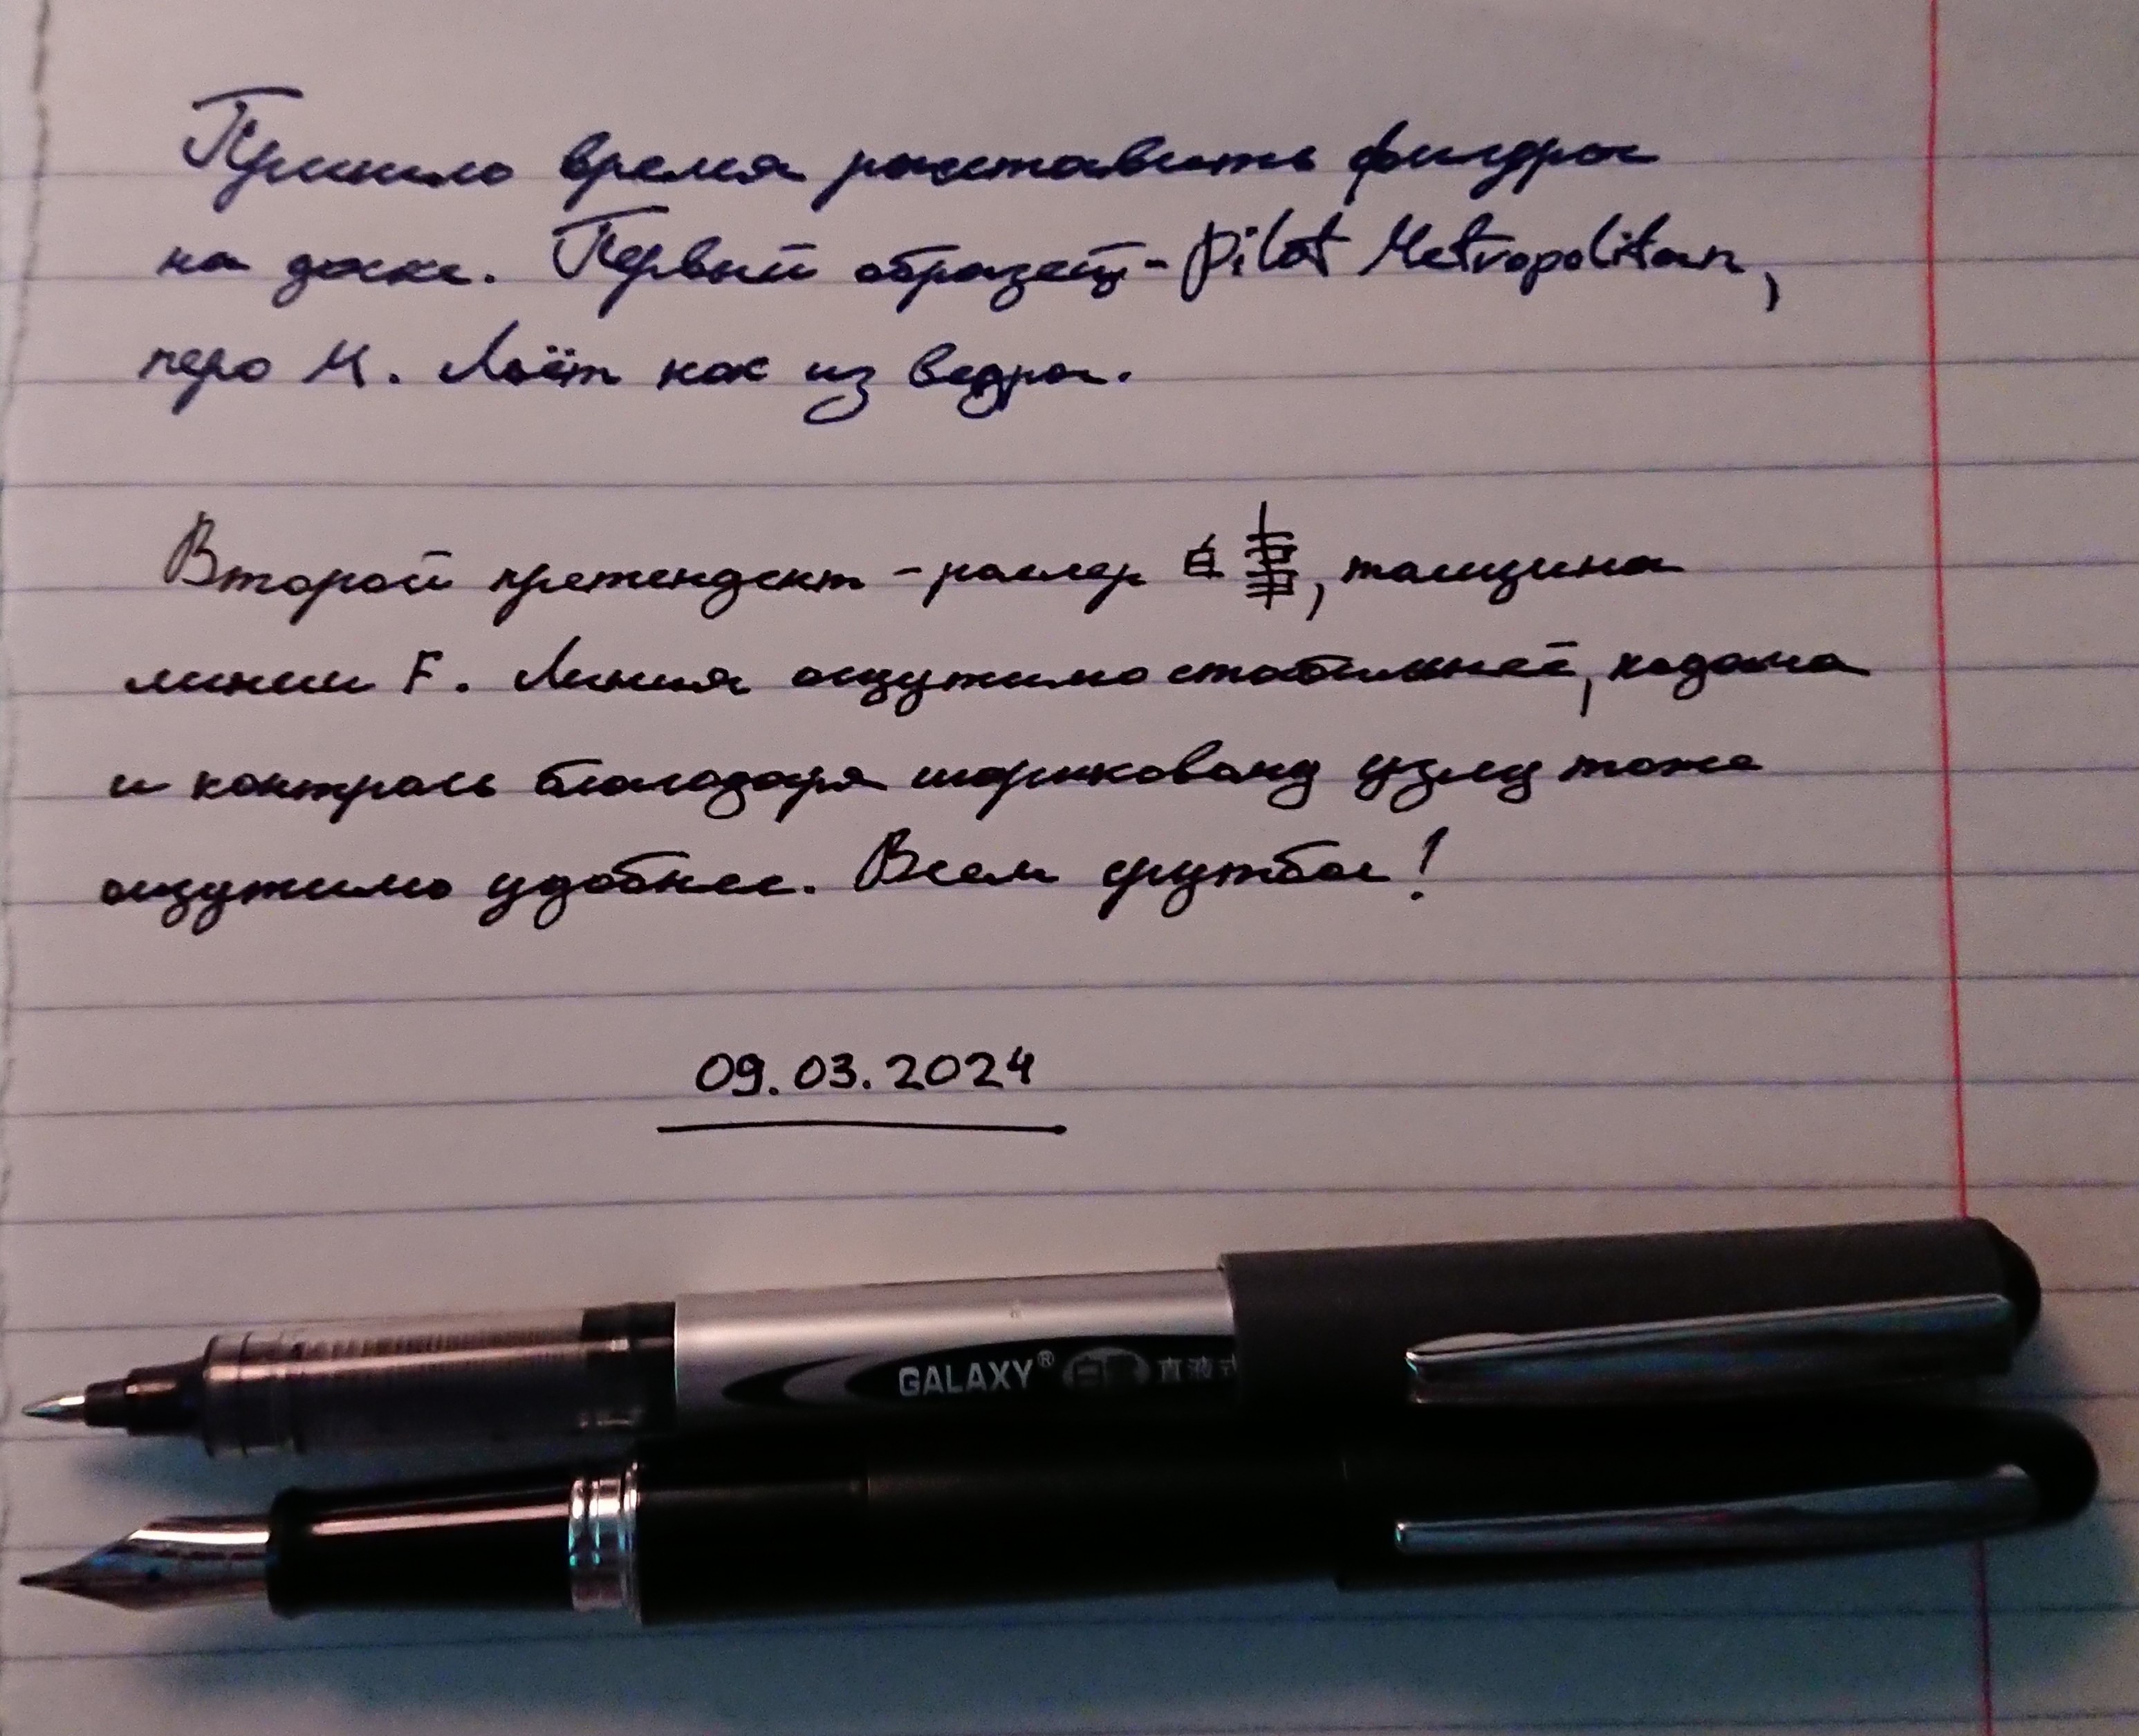 Пришло время расставить фигуры
на доске. Первый образец - Pilot Metropolitan,
перо М. Льёт как из ведра.
Второй претендент - роллер 白, толщина
линии F. Линия ощутимо стабильней, подача
и контроль благодаря шариковому узлу тоже
ощутимо удобнее. Всем дружбы!
09.03.2024
GALAXY® 白 直液式